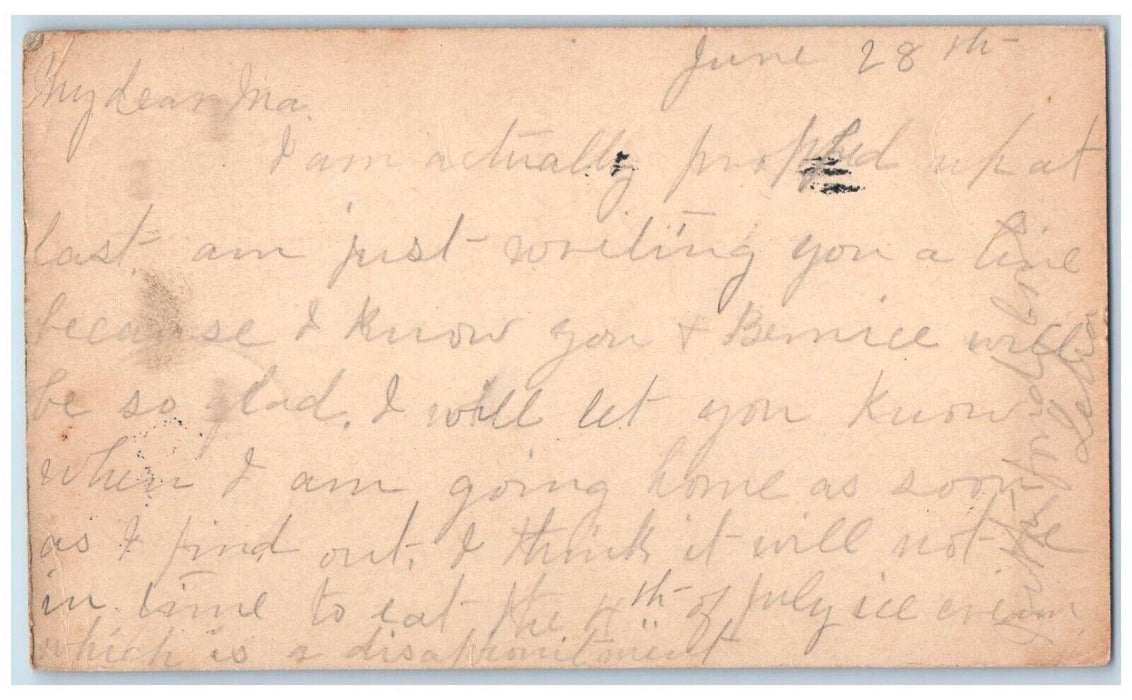 June 28th
My dear Ma.
I am actually propped up at
last am just writing you a line
because I know you & Bernice will
be so glad. I will let you know
when I am going home as soon
as I find out. I think it will not be
in time to eat the 4th of July ice cream
which is a disappointment